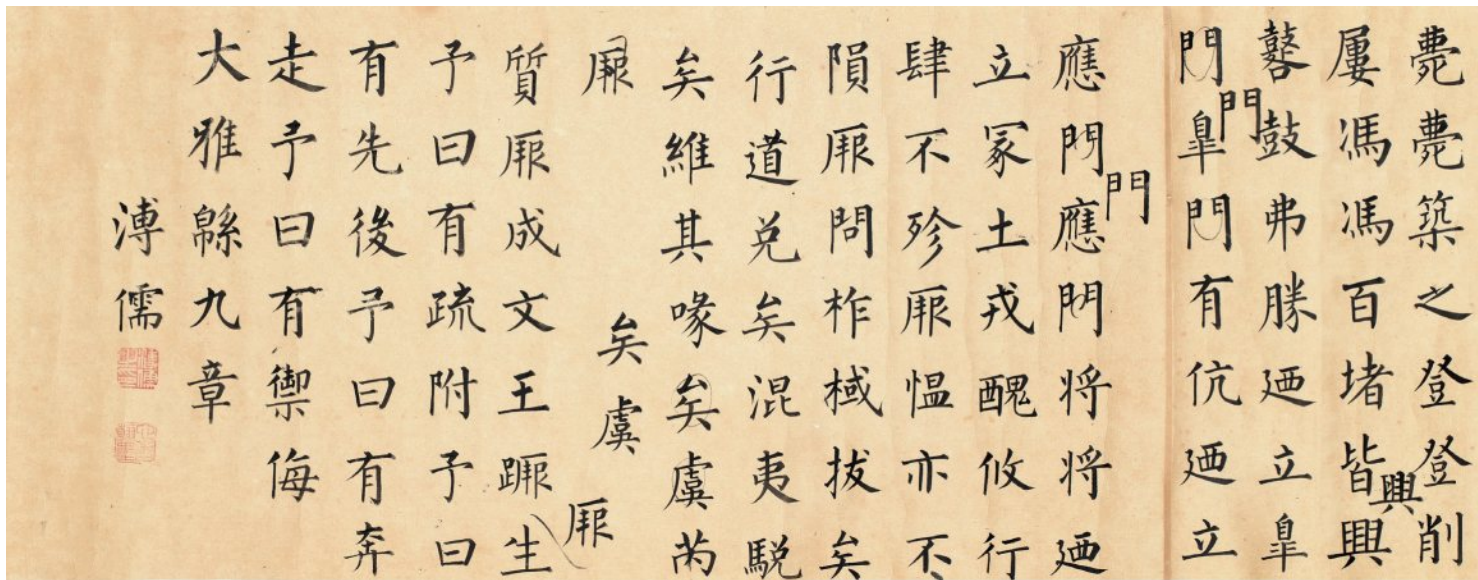 薨薨築之登登削
興
屢馮馮百堵皆興
鼛鼓弗勝廼立皐
門
門皐門有伉廼立
門
應門應門将将廼
立冢土戎醜攸行
肆不殄厥愠亦不
隕厥問柞棫拔矣
行道兌矣混夷駾
矣維其喙矣虞芮
厥
矣虞
厥
質厥成文王蹶生
予曰有疏附予曰
有先後予曰有奔
走予曰有禦侮
大雅緜九章
溥儒